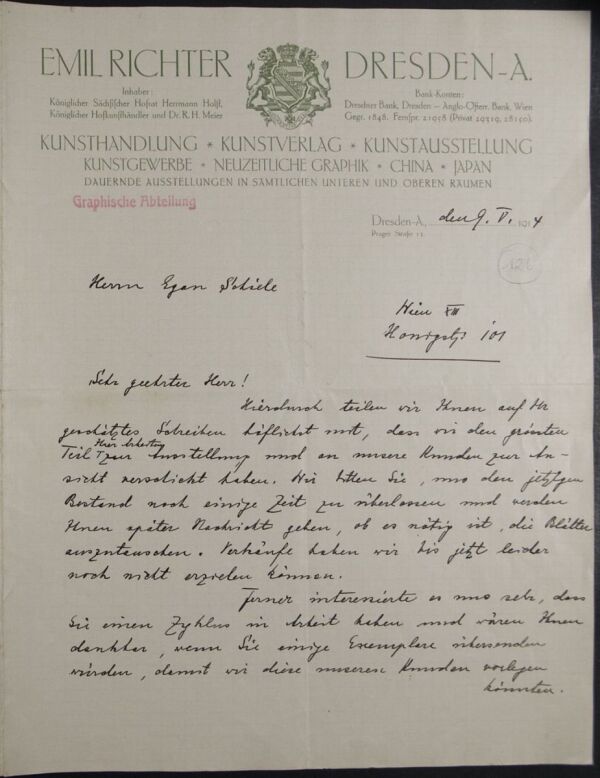 EMIL RICHTER DRESDEN-A.
Inhaber:
Königlicher Sächsischer Hofrat Herrmann Holst,
Königlicher Hofkunsthändler und Dr. R. H. Meier
Bank-Konten:
Dresdner Bank, Dresden – Anglo-Österr. Bank, Wien
Gegr. 1848. Fernspr. 21958 (Privat 29319, 28150).
KUNSTHANDLUNG * KUNSTVERLAG * KUNSTAUSSTELLUNG
KUNSTGEWERBE * NEUZEITLICHE GRAPHIK * CHINA * JAPAN
DAUERNDE AUSSTELLUNGEN IN SÄMTLICHEN UNTEREN UND OBEREN RÄUMEN
Graphische Abteilung
Dresden-A., den 9. V. 1914
Prager Straße 13.
Herrn Egon Schiele
Wien XIII
101
Sehr geehrter Herr!
Hierdurch teilen wir Ihnen auf Ihr
geschätztes Schreiben höflichst mit, dass wir den grössten
Teil Ihrer Arbeiten zur Ausstellung und an unsere Kunden zur An-
sicht verschickt haben. Wir bitten Sie, uns den jetzigen
Bestand noch einige Zeit zu überlassen und werden
Ihnen später Nachricht geben, ob es nötig ist, die Blätter
auszutauschen. Verkäufe haben wir bis jetzt leider
noch nicht erzielen können.
Ferner interessierte es uns sehr, dass
Sie einen Zyklus in Arbeit haben und wären Ihnen
dankbar, wenn Sie einige Exemplare übersenden
würden, damit wir diese unseren Kunden vorlegen
könnten.